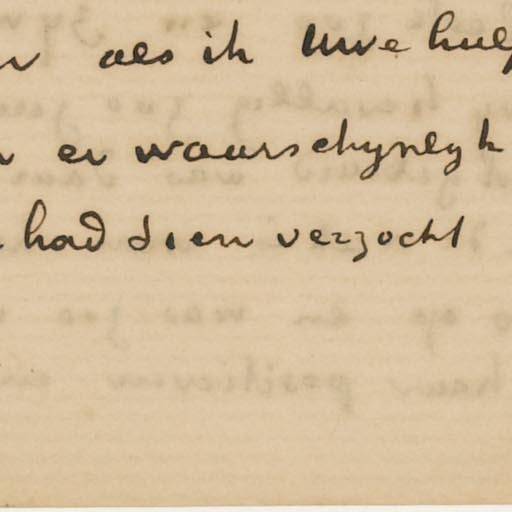 als ik Uwe hulp
er waarschynlyk
had dien verzocht